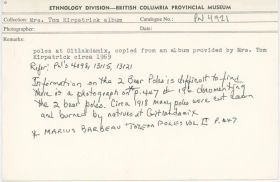 ETHNOLOGY DIVISION—BRITISH COLUMBIA PROVINCIAL MUSEUM
Collection: Mrs. Tom Kirkpatrick album Catalogue No.: PN 4091
Photographer Date
Remarks
poles at Gitlakdamix, copied from an album provided by Mrs. Tom
Kirkpatrick circa 1969
Refer: PN's 4093, 13115, 13121
Information on the 2 Bear Poles is difficult to find
there is a photograph on p.447 documenting
the 2 bear poles. Circa 1918 many poles were cut down
and burned by natives at Gitlakdamix
* MARIUS BARBEAU "TOTEM POLES VOL II P.447